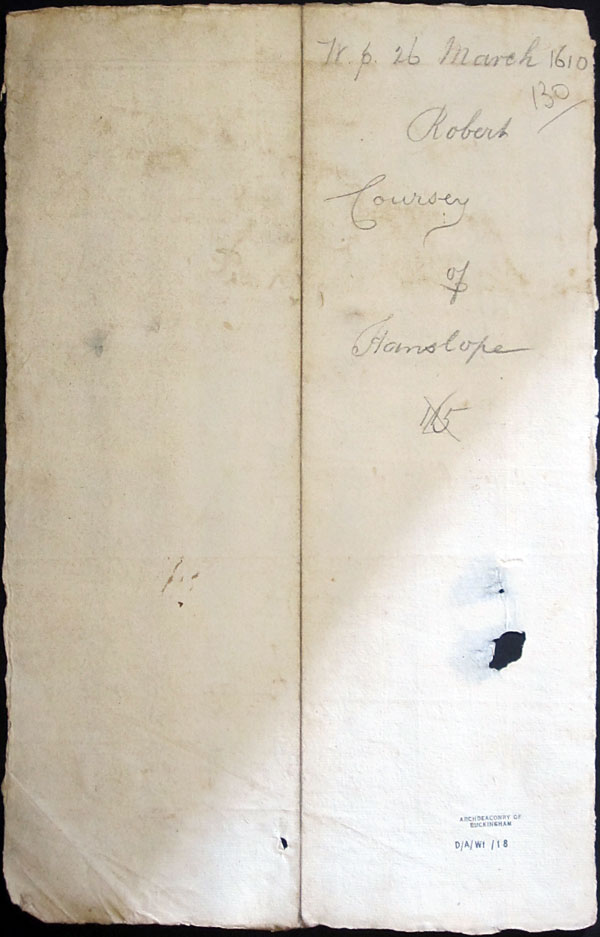 W. p. 26 March 1610
130
Robert
Coursey
of
Hanslope
ARCHDEACONRY OF
BUCKINGHAM
D/A/Wf /18